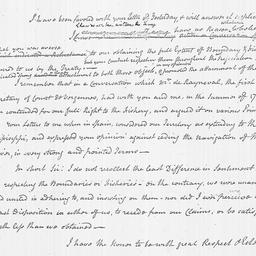 I have been favored with your letter of Saturday & will answer it explicitly
have no Reason to believe
that you was averse
to our obtaining the full Extent of Boundary &
to us by the Treaty
attachment to both those objects
I remember that in a conversation which Mr de Rayneval, the first
Secretary of Count de Vergennes, had with you and me in the Summer of 17
contended for our full Right to the Fishery, and argued it on various
Your Letters to me when in Spain, considered our Territory as extending to the
Mississippi, and expressed your opinion against ceding the navigation of
River, in very strong and pointed Terms—
In short Sir! I do not recollect the least Difference in Sentiment
respecting the Boundaries or Fisheries— on the contrary, we were unani
united in adhering to, and insisting on them— nor did I ever perceive
Disposition in either of us, to recede from our Claims, or be satis
with less than we obtained—
I have the Honor to be with great Respect & Este